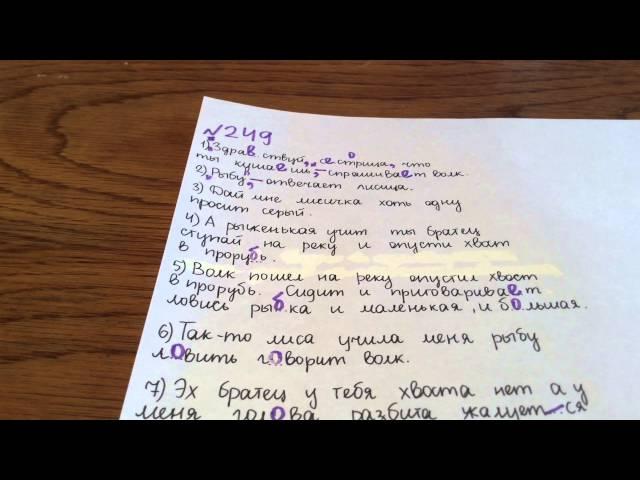 №249
1) Здравствуй, сестрица, что
ты кушаешь, - спрашивает волк.
2) Рыбу, - отвечает лисица.
3) Дай мне лисичка хоть одну
просит серый.
4) А рыженькая учит ты братец
ступай на реку и опусти хвост
в прорубь.
5) Волк пошел на реку опустил хвост
в прорубь. Сидит и приговаривает
ловись рыбка и маленькая, и большая.
6) Так-то лиса учила меня рыбу
ловить говорит волк.
7) Эх братец у тебя хвоста нет а у
меня голова разбита жалуется